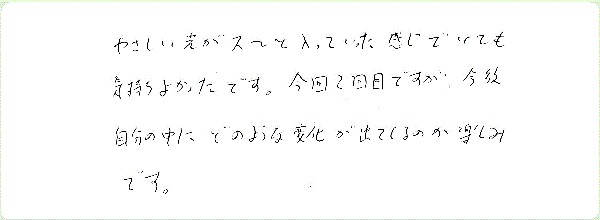 やさしい光がスーと入っていった感じでとても
気持ちよかったです。今回2回目ですが、今後
自分の中にどのような変化が出てくるのか楽しみ
です。